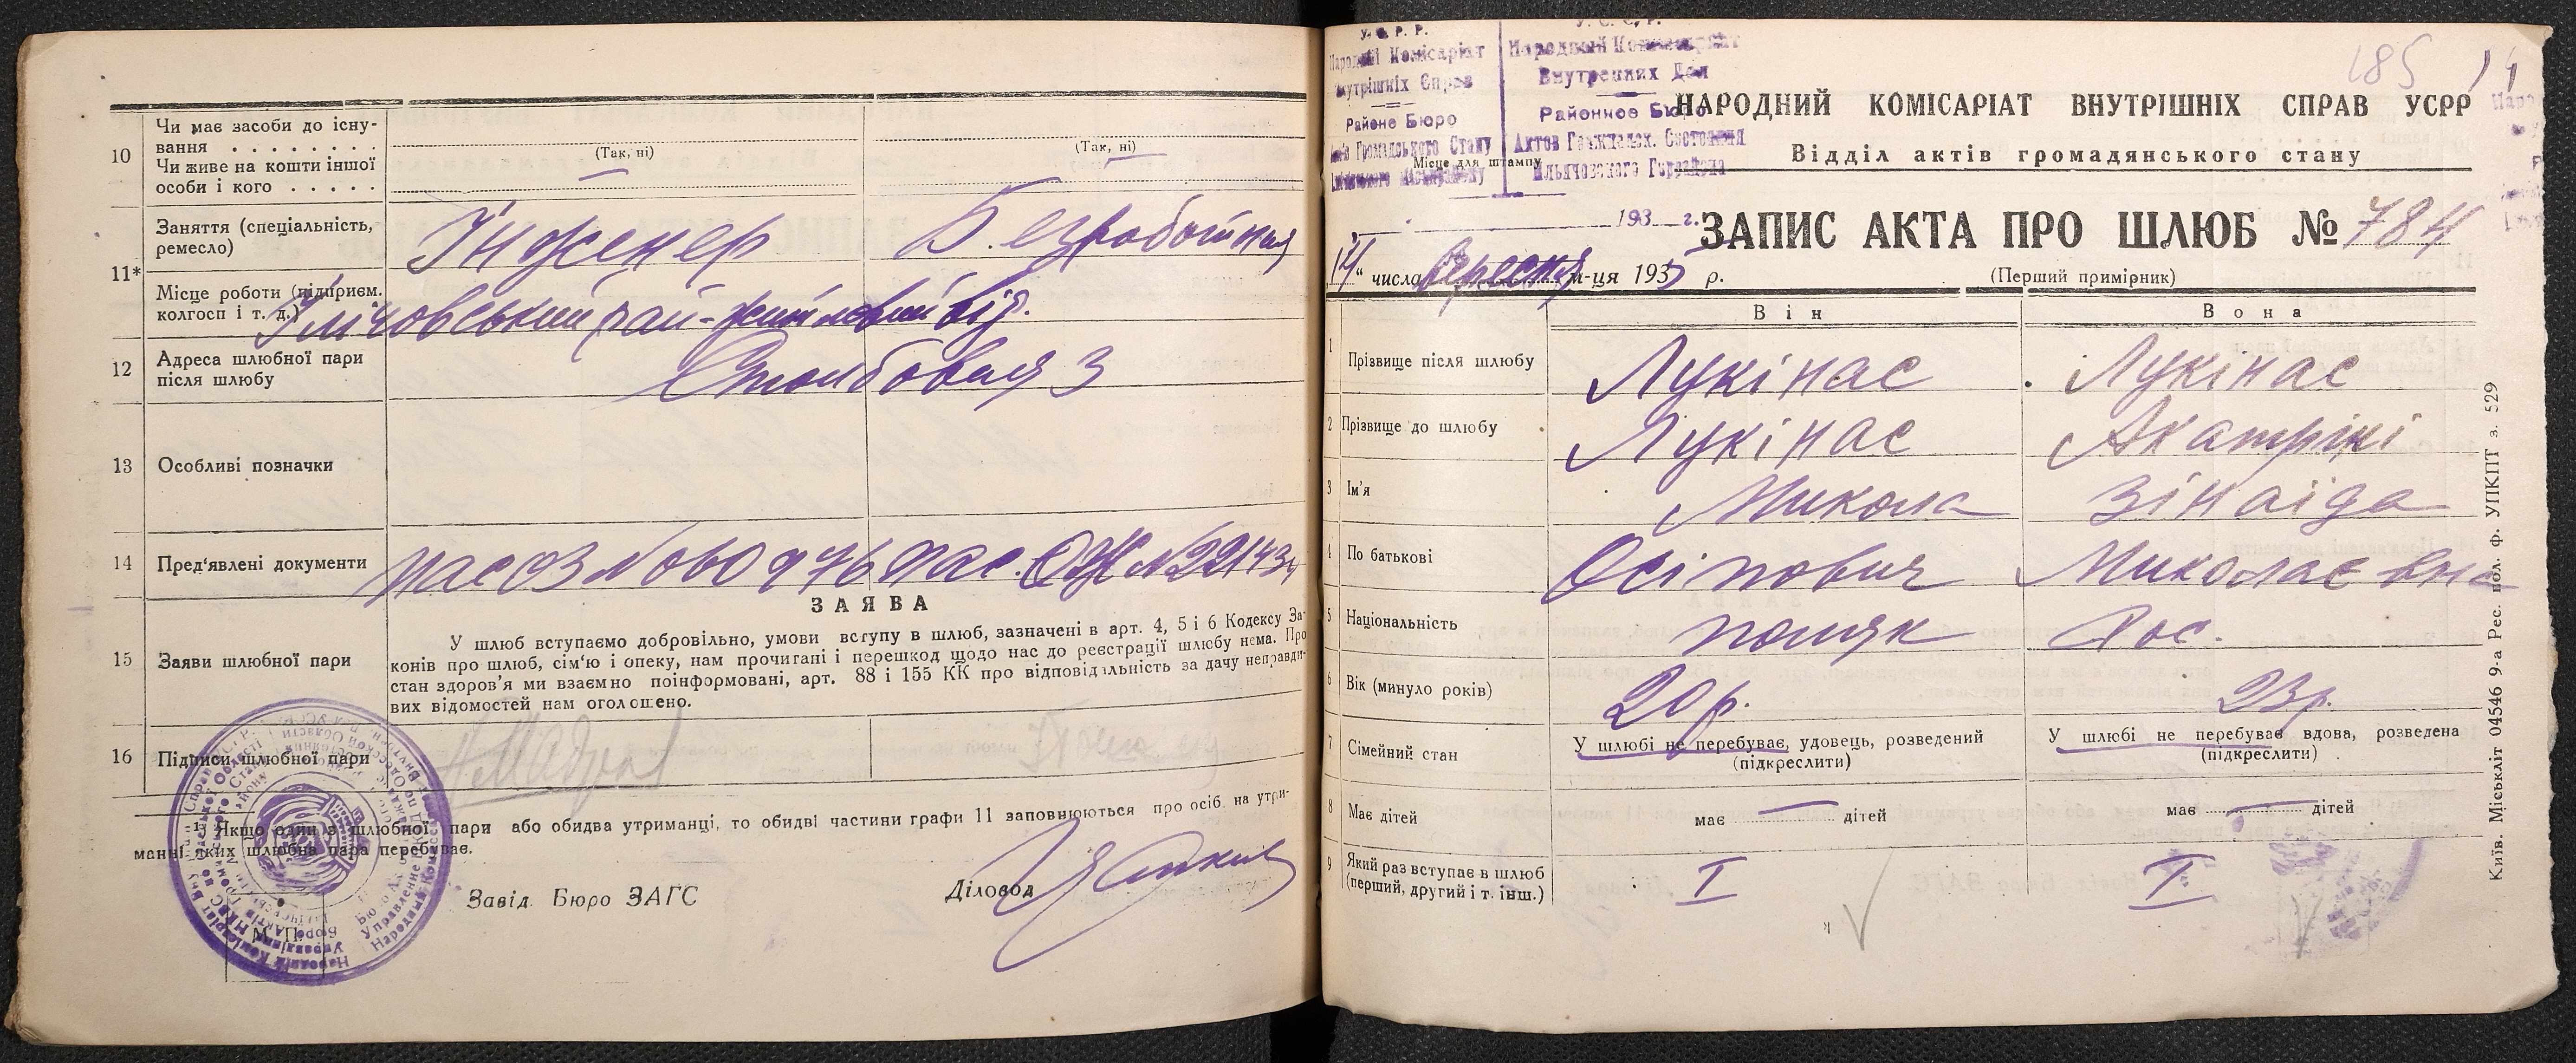 10
Чи має засоби до існу-
вання . . . . . . . .
Чи живе на кошти іншої
особи і кого . . . . .
(Так, ні)
(Так, ні)
11*
Заняття (спеціальність,
ремесло)
Інженер
Безработная
Місце роботи (підприєм.
колгосп і т. д.)
12
Адреса шлюбної пари
після шлюбу
Столбовая 3
13
Особливі позначки
14
Пред'явлені документи
15
Заяви шлюбної пари
ЗАЯВА
У шлюб вступаємо добровільно, умови вступу в шлюб, зазначені в арт. 4, 5 і 6 Кодексу За-
конів про шлюб, сім'ю і опеку, нам прочитані і перешкод щодо нас до реєстрації шлюбу нема. Про
стан здоров'я ми взаємно поінформовані, арт. 88 і 155 КК про відповідальність за дачу неправди-
вих відомостей нам оголошено.
16
Підписи шлюбної пари
¹) Якщо один з шлюбної пари або обидва утриманці, то обидві частини графи 11 заповнюються про осіб, на утри-
манні яких шлюбна пара перебуває.
Завід. Бюро ЗАГС
Діловод
М. П.
У. С. Р. Р.
Народній Комісаріат
Внутрішніх Справ
Районе Бюро
Громадського Стану
У. С. С. Р.
Народный Комиссариат
Внутренних Дел
Районное Бюро
Актов Гражданск. Состояния
Ильичовского Горрайона
Місце для штампу
185
14
НАРОДНИЙ КОМІСАРІАТ ВНУТРІШНІХ СПРАВ УСРР
Відділ актів громадянського стану
193 г.
ЗАПИС АКТА ПРО ШЛЮБ № 784
14" числа Вересня м-ця 1935 р.
(Перший примірник)
Він
Вона
1 Прізвище після шлюбу
Лукінас
Лукінас
2 Прізвище до шлюбу
Лукінас
Акатріні
3 Ім'я
Микола
Зінаїда
4 По батькові
Осіпович
Миколаєвна
5 Національність
поляк
Рос.
6 Вік (минуло років)
20 р.
23 р.
7 Сімейний стан
У шлюбі не перебуває, удовець, розведений
(підкреслити)
У шлюбі не перебуває вдова, розведена
(підкреслити)
8 Має дітей
має — дітей
має — дітей
9 Який раз вступає в шлюб
(перший, другий і т. інш.)
I
I
Київ. Міськліт 04546 9-а Рес. пол. ф. УПКПТ з. 529